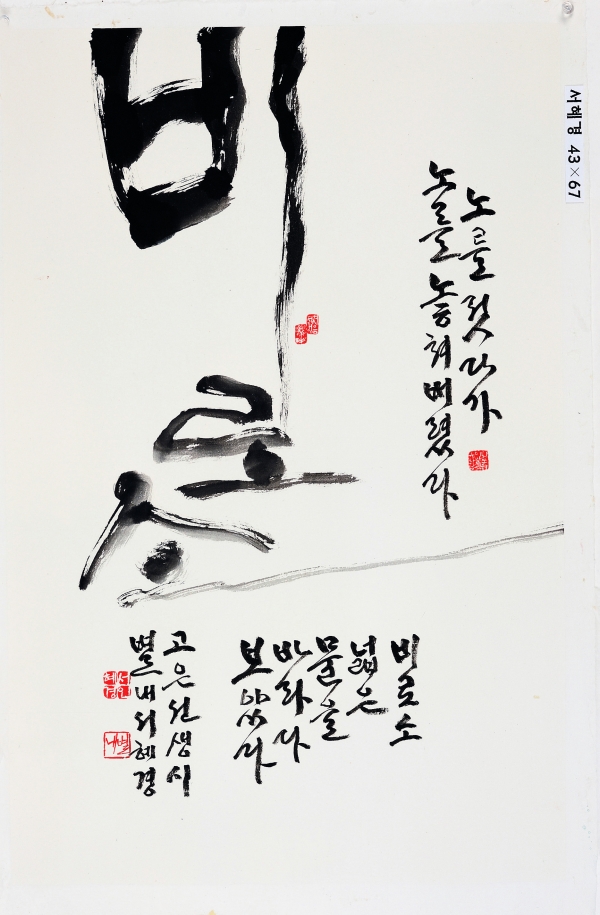 비로소
노를 젓다가
노를 놓쳐버렸다
비로소
넓은
물을
바라다
보았다
고은선생시
별내서혜경
서혜경 43×67